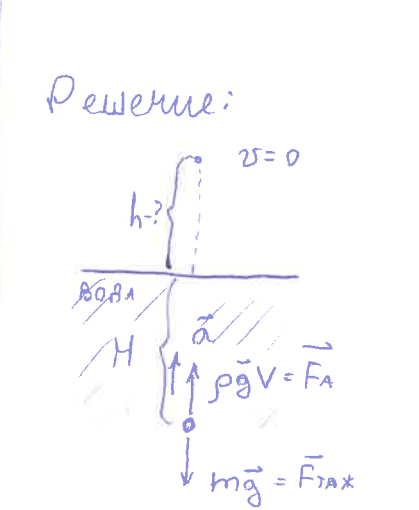 Решение:
v = 0
h-?
ВОДА
a⃗
H
ρg⃗V = F⃗A
mg⃗ = F⃗тяж